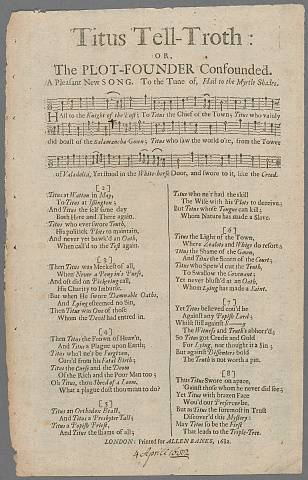 Titus Tell-Troth:
OR,
The PLOT-FOUNDER Confounded.
A Pleasant New SONG. To the Tune of, Hail to the Myrtle Shades.
HAil to the Knight of the Post; To Titus the Chief of the Town; Titus who vainly
did boast of the Salamancha Gown; Titus who saw the world o're, from the Tower
of Valadolid, Yet stood in the White-horse Door, and swore to it, like the Creed.
[ 2 ]
Titus at Watton in May,
To Titus at Islington;
And Titus the self same day
Both Here and There again.
Titus who never swore Touth,
His politick Plots to maintain,
And never yet bawk'd an Oath,
When call'd to the Test again.
[ 3 ]
Then Titus was Meekest of all,
When Never a Penny in's Purse,
And oft did on Pickering call,
His Charity to Imburse.
But when He swore Damnable Oaths,
And Lying esteemed no Sin,
Then Titus was One of those
Whom the Devil had entred in.
[ 4 ]
Then Titus the Frown of Heav'n,
And Titus a Plague upon Earth;
Titus who'l ne're be Forgiven,
Curs'd from his Fatal Birth;
Titus the Curse and the Doom
Of the Rich and the Poor Man too;
Oh Titus, thou Shred of a Loom,
What a plague dost thou mean to do?
[ 5 ]
Titus an Orthodox Beast,
And Titus a Presbyter Tall;
Titus a Popish Priest,
And Titus the shame of all;
Titus who ne'r had the skill
The Wise with his Plots to deceive;
But Titus whose Tongue can kill;
Whom Nature has made a Slave.
[ 6 ]
Titus the Light of the Town,
Where Zealots and Whigs do resort;
Titus the Shame of the Gown,
And Titus the Scorn of the Court;
Titus who Spew'd out the Truth,
To Swallow the Covenant
Yet never blush'd at an Oath,
Whom Lying has made a Saint.
[ 7 ]
Yet Titus believed cou'd be
Against any Popish Lord;
Whilst still against S------y
The Witness and Truth's abhorr'd;
So Titus got Credit and Gold
For Lying, nor thought it a Sin;
But against Dissenters bold
The Truth is not worth a pin.
[ 8 ]
Thus Titus Swore on apace,
'Gainst those whom he never did see;
Yet Titus with brazen Face
Wou'd our Preserver be.
But as Titus the foremost in Trust
Discover'd this Mystery:
May Titus so be the First
That leads to the Triple-Tree.
LONDON: Printed for ALLEN BANKS, 1682.
4 April 1682